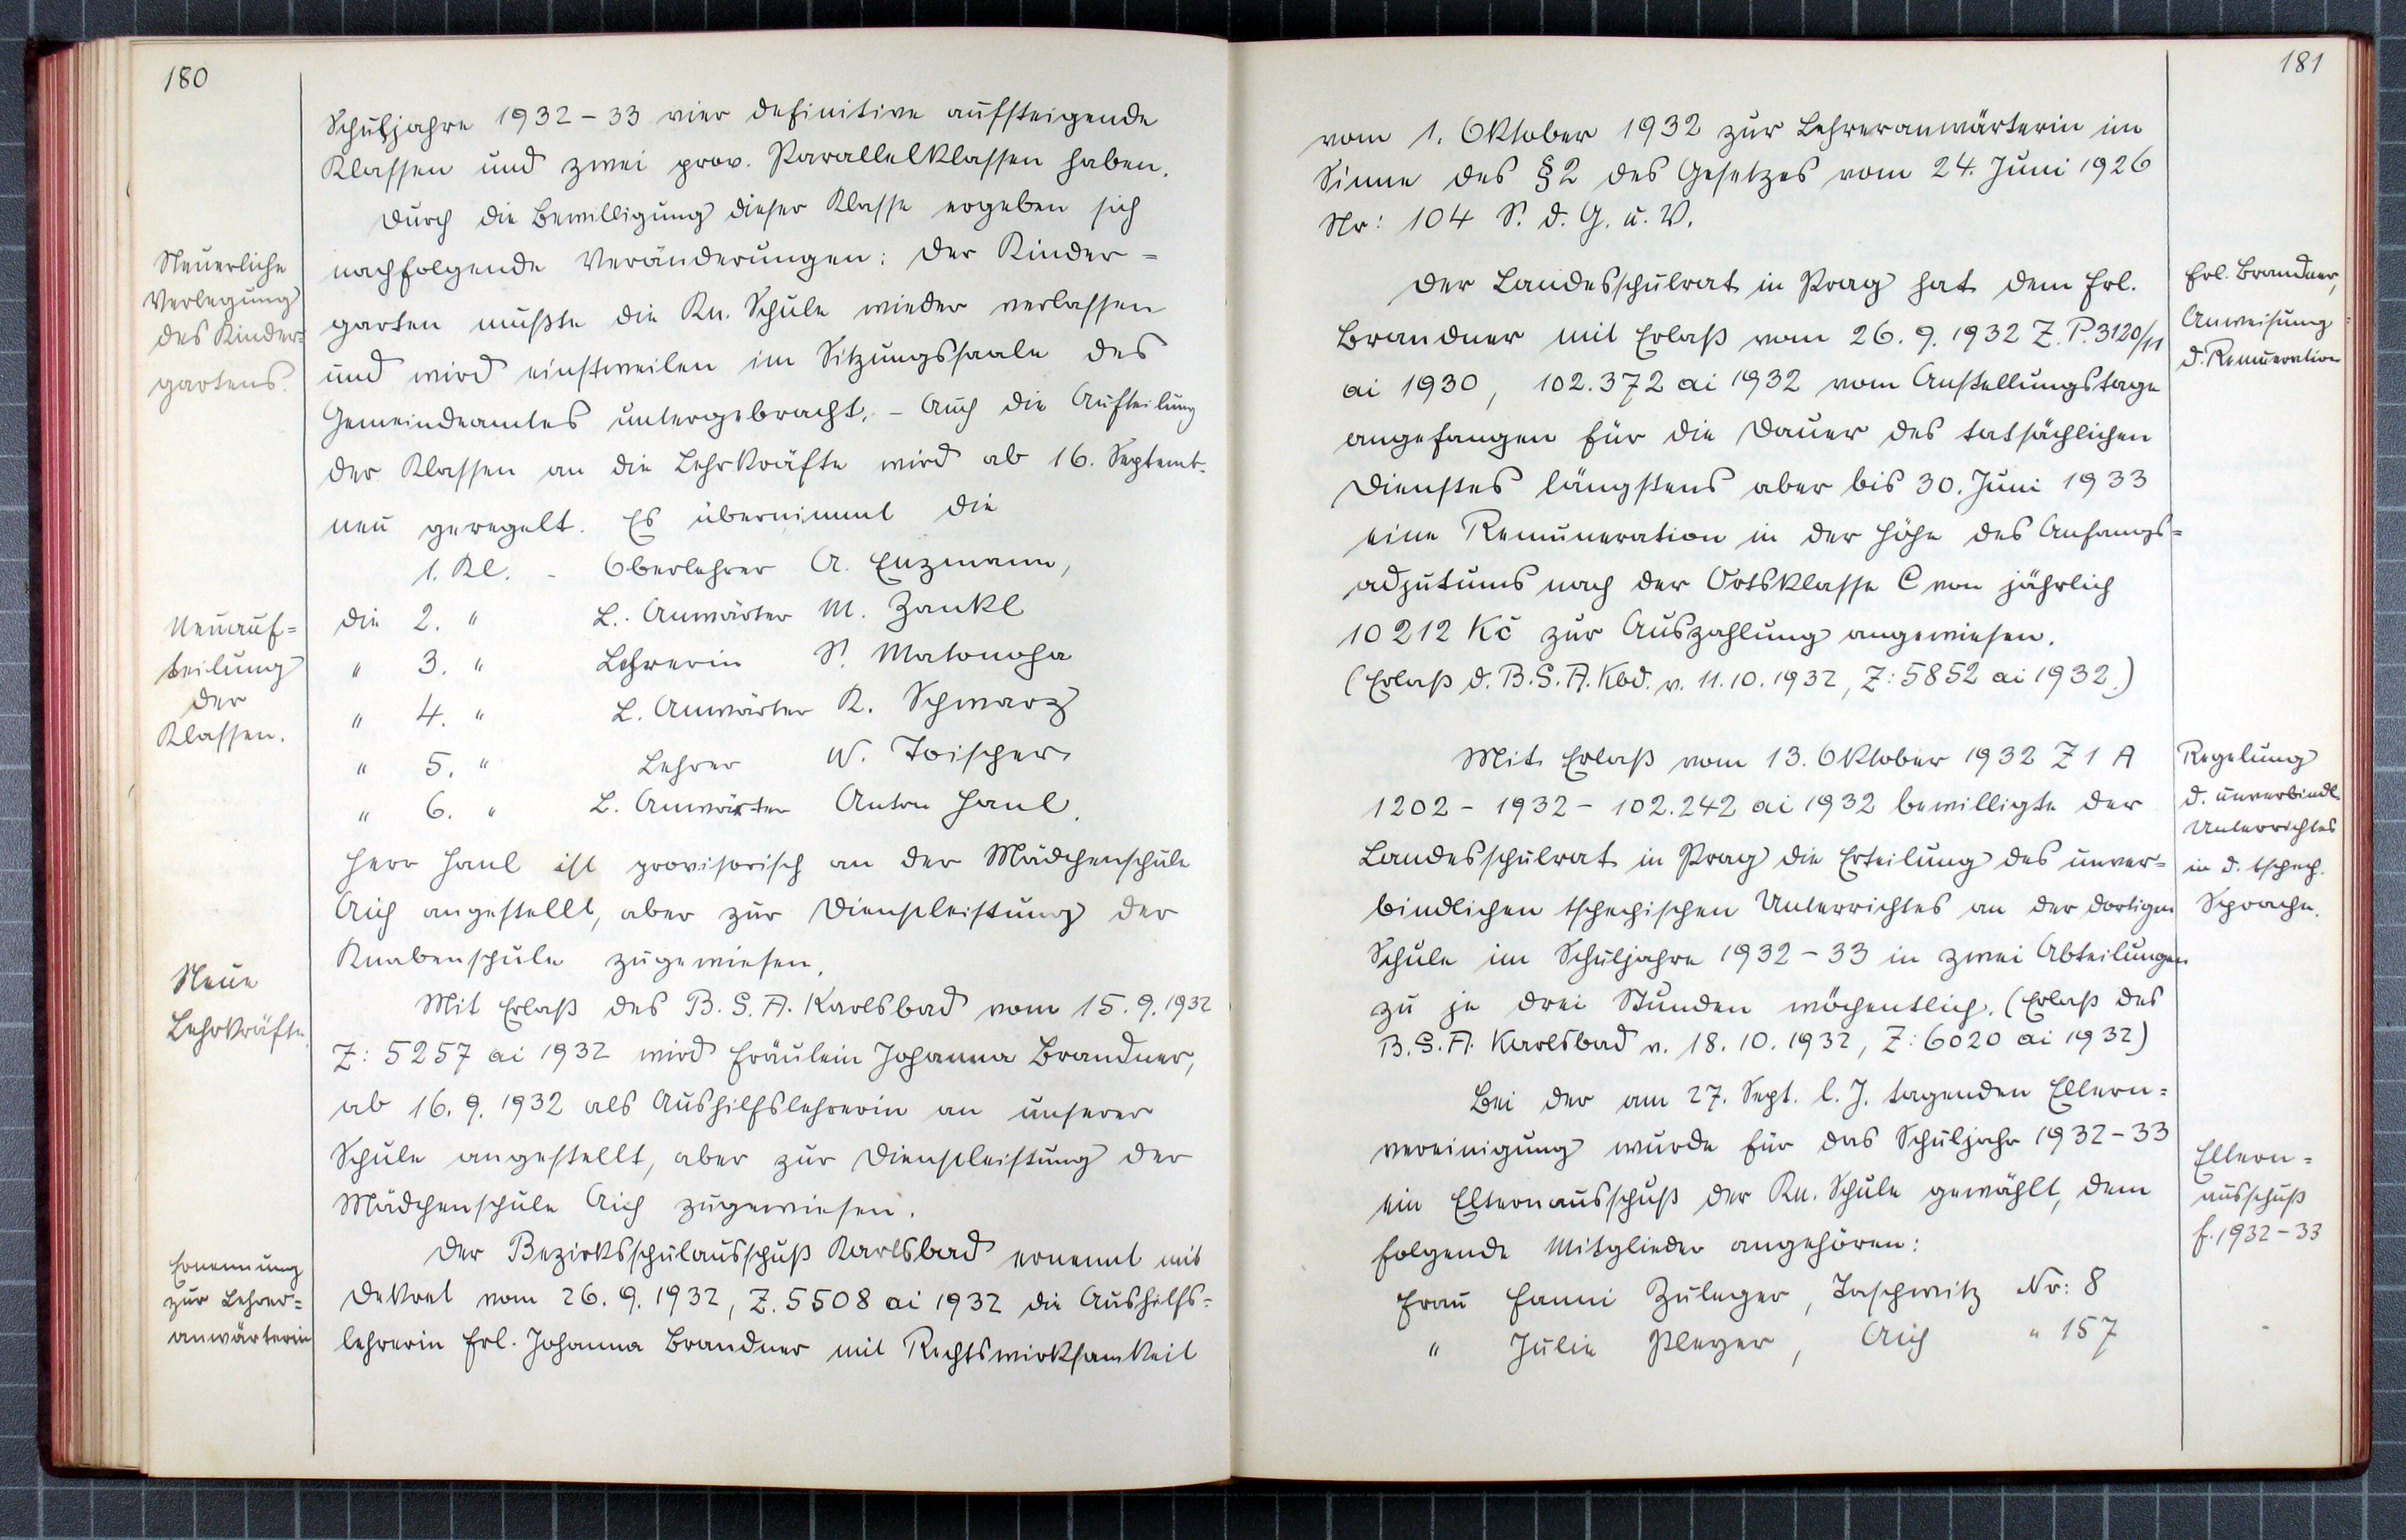 180
Schuljahre 1932-33 vier definitive aufsteigende
Klassen und zwei prov. Parallelklassen haben.
Durch die Bewilligung dieser Klasse ergeben sich
Neuerliche
Verlegung
des Kinder=
gartens.
nachfolgende Veränderungen: Der Kinder=
garten mußte die Kn. Schule wieder verlassen
und wird einstweilen im Sitzungssaale des
Gemeindeamtes untergebracht. - Auch die Aufteilung
der Klassen an die Lehrkräfte wird ab 16. Septemb.
neu geregelt. Es übernimmt die
1. Kl. - Oberlehrer A. Enzmann,
Neuauf=
teilung
der
Klassen.
die 2. " L. Anwärter M. Zankl
" 3. " Lehrerin S. Matonoha
" 4. " L. Anwärter R. Schwarz
" 5. " Lehrer W. Toischer
" 6. " L. Anwärter Anton Hanl.
Herr Hanl ist provisorisch an der Mädchenschule
Aich angestellt, aber zur Dienstleistung der
Knabenschule zugewiesen.
Neue
Lehrkräfte.
Mit Erlaß des B. S. A. Karlsbad vom 15. 9. 1932
Z: 5257 ai 1932 wird Fräulein Johanna Brandner,
ab 16. 9. 1932 als Aushilfslehrerin an unserer
Schule angestellt, aber zur Dienstleistung der
Mädchenschule Aich zugewiesen.
Ernennung
zur Lehrer=
anwärterin
Der Bezirksschulausschuß Karlsbad ernennt mit
Dekret vom 26. 9. 1932, Z. 5508 ai 1932 die Aushilfs=
lehrerin Frl. Johanna Brandner mit Rechtswirksamkeit
181
vom 1. Oktober 1932 zur Lehreranwärterin im
Sinne des § 2 des Gesetzes vom 24. Juni 1926
Nr: 104 S. d. G. u. V.
Der Landesschulrat in Prag hat dem Frl.
Brandner mit Erlaß vom 26. 9. 1932 Z. P. 3120/11
ai 1930, 102.372 ai 1932 vom Anstellungstage
angefangen für die Dauer des tatsächlichen
Dienstes längstens aber bis 30. Juni 1933
eine Remuneration in der Höhe des Anfangs=
adjutums nach der Ortsklasse C von jährlich
10212 Kč zur Auszahlung angewiesen.
(Erlaß d. B. S. A. Kbd. v. 11. 10. 1932, Z: 5852 ai 1932.)
Frl. Brandner,
Anweisung
d. Remuneration
Mit Erlaß vom 13. Oktober 1932 Z 1 A
1202 - 1932 - 102.242 ai 1932 bewilligte der
Landesschulrat in Prag die Erteilung des unver=
bindlichen tschechischen Unterrichtes an der dortigen
Schule im Schuljahre 1932-33 in zwei Abteilungen
zu je drei Stunden wöchentlich. (Erlaß des
B. S. A. Karlsbad v. 18. 10. 1932, Z: 6020 ai 1932)
Regelung
d. unverbindl.
Unterrichtes
in d. tschech.
Sprache.
Bei der am 27. Sept. l. J. tagenden Eltern=
vereinigung wurde für das Schuljahr 1932-33
ein Elternausschuß der Kn. Schule gewählt, dem
folgende Mitglieder angehören:
Eltern=
ausschuß
f. 1932-33
Frau Fanni Zuleger, Taschwitz Nr: 8
" Julie Pleyer, Aich " 157